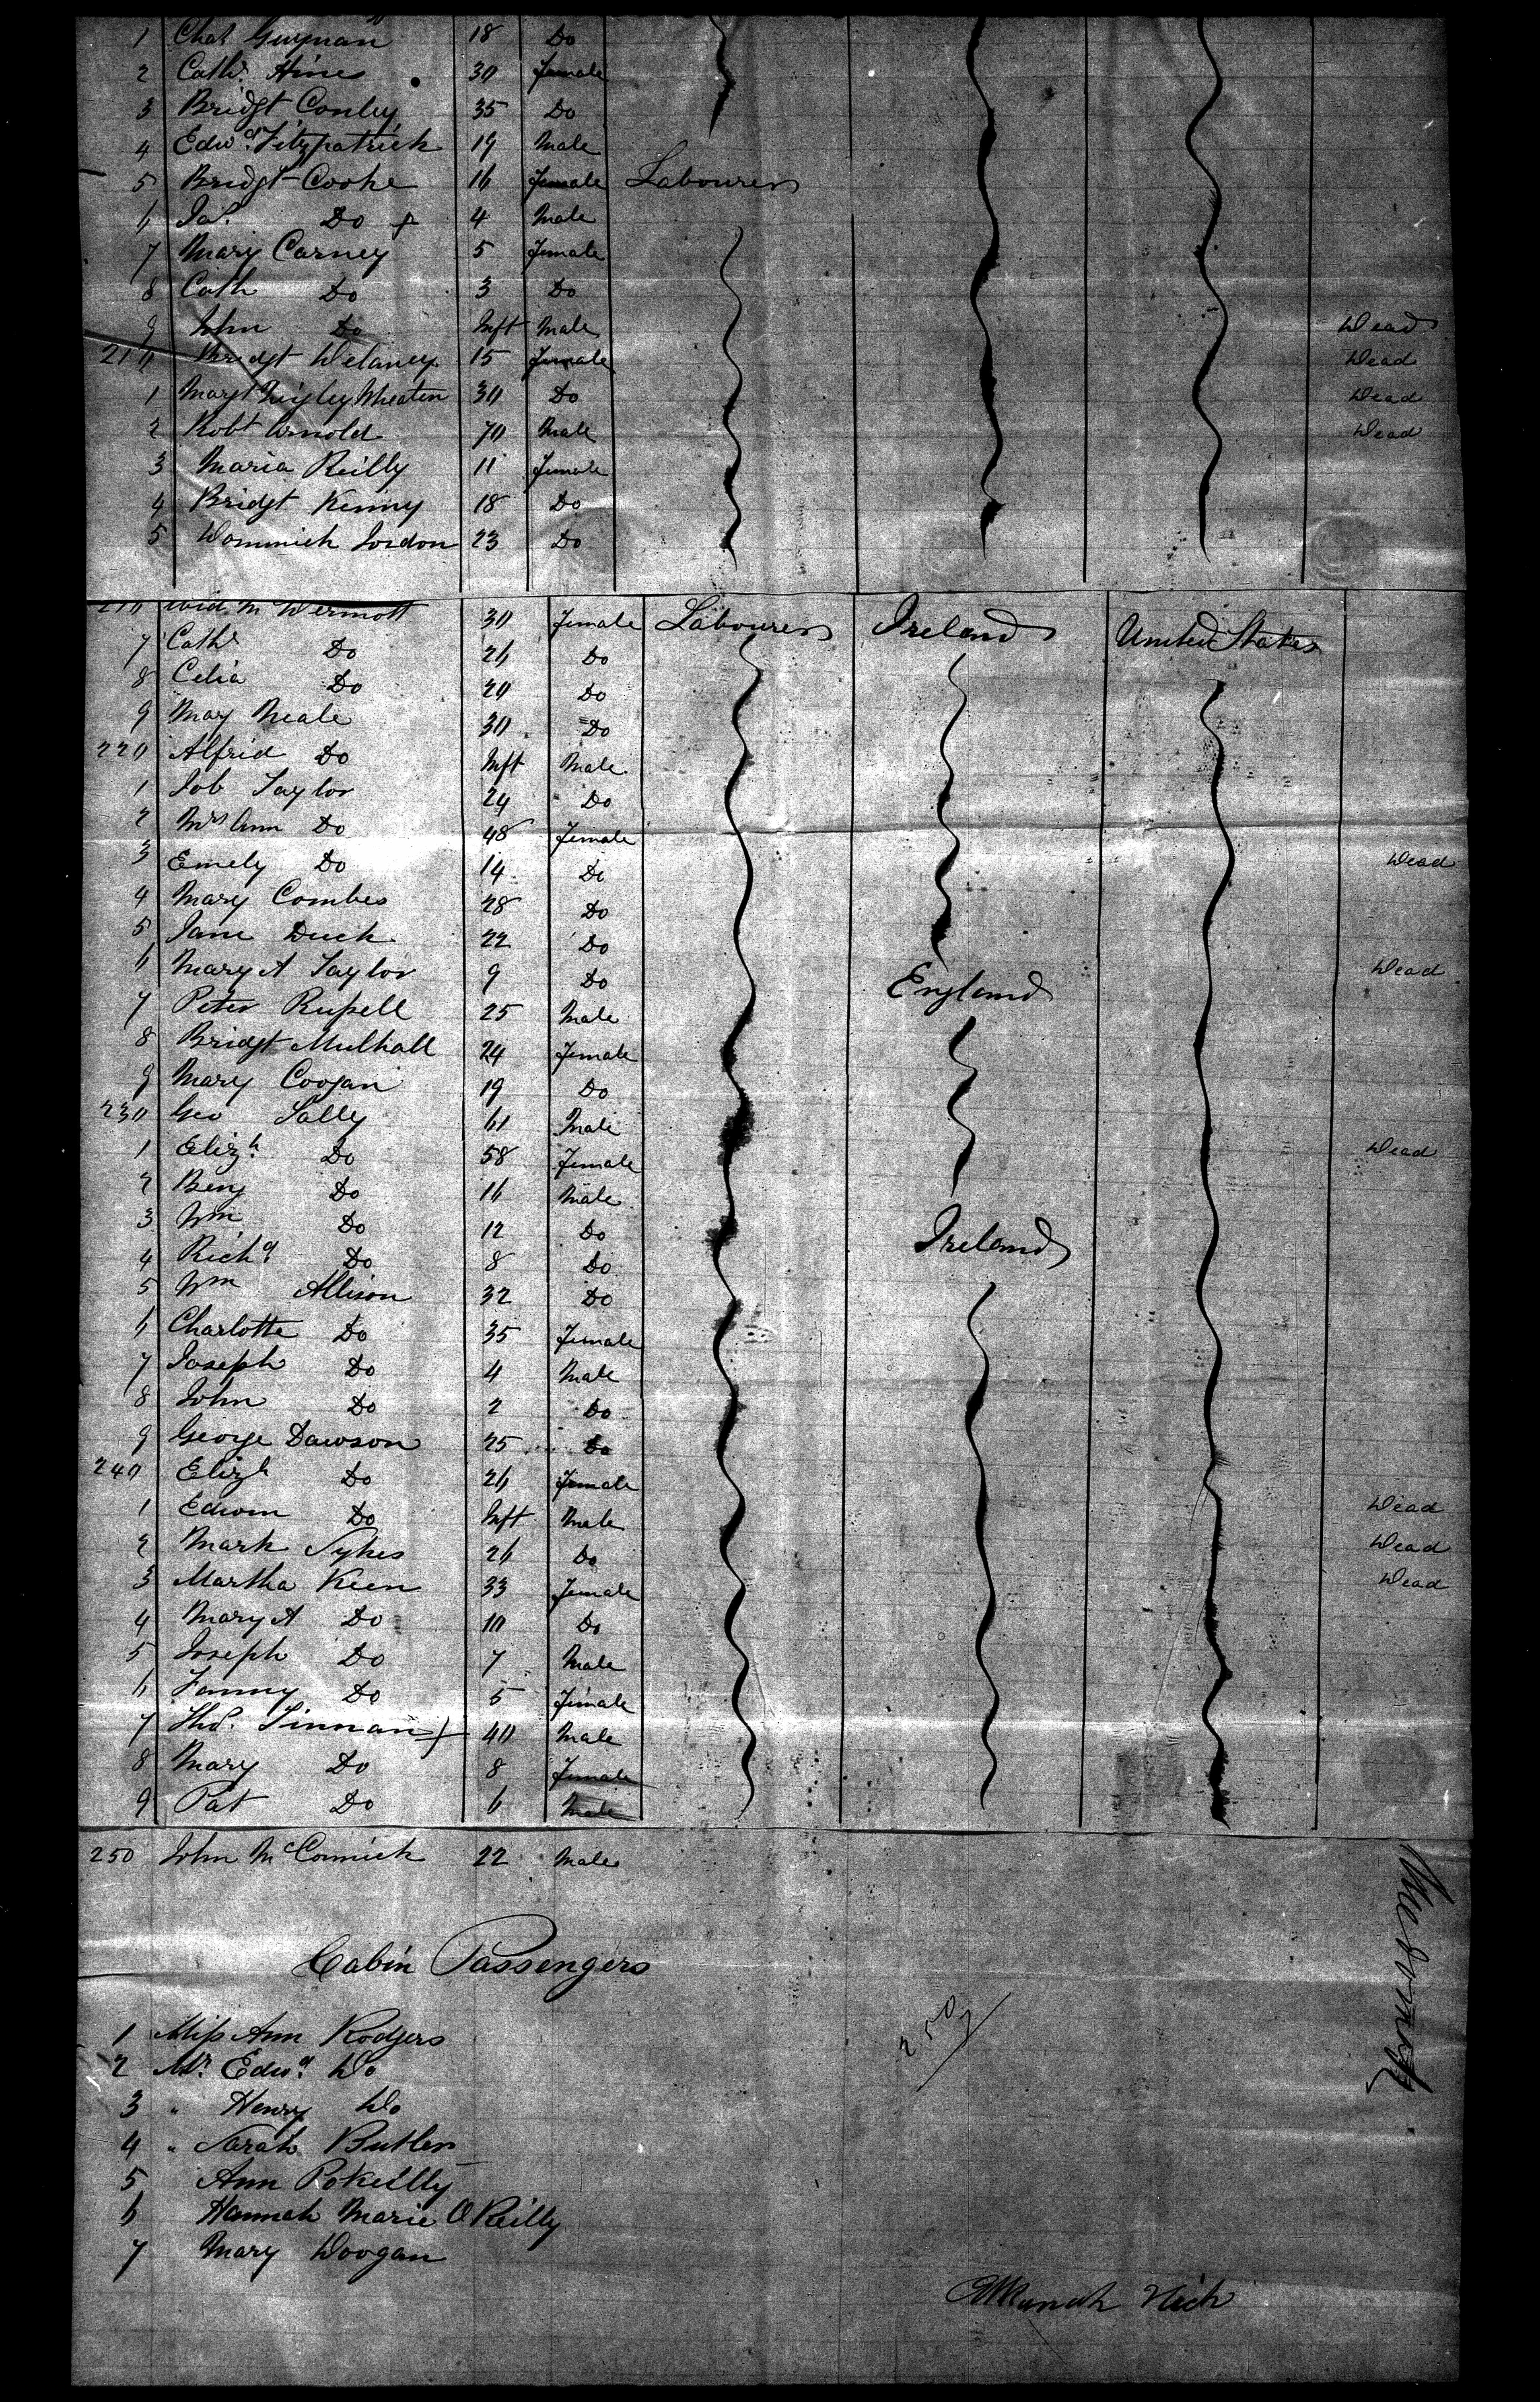 1 Chas Guynan 18 Do
2 Cathe Hines 30 Female
3 Bridgt Conley 35 Do
4 Edwd Fitzpatrick 19 Male
5 Bridgt Cooke 16 Female Labourers
6 Jas Do + 4 Male
7 Mary Carney 5 Female
8 Cath Do 3 Do
9 John Do Inft Male Dead
210 Bridgt Delaney 15 Female Dead
1 Margt Wheaten 30 Do Dead
2 Robt Arnold 70 Male Dead
3 Maria Reilly 11 Female
4 Bridgt Kenny 18 Do
5 Dominick Jordon 23 Do
McDermott 30 Female Labourers Ireland United States
7 Cathe Do 26 Do
8 Celia Do 20 Do
9 May Neale 30 Do
220 Alfrid Do Inft Male
1 Job Taylor 24 Do
2 Mrs Ann Do 48 Female
3 Emely Do 14 Do Dead
4 Mary Combes 28 Do
5 Jane Duck 22 Do
6 Mary A Taylor 9 Do England Dead
7 Peter Russell 25 Male
8 Bridgt Mulhall 24 Female
9 Mary Coogan 19 Do
230 Geo Sally 61 Male
1 Elizh Do 58 Female Dead
2 Benj Do 16 Male
3 Wm Do 12 Do Ireland
4 Richd Do 8 Do
5 Wm Allison 32 Do
6 Charlotte Do 35 Female
7 Joseph Do 4 Male
8 John Do 2 Do
9 George Dawson 25 Do
240 Elizh Do 26 Female
1 Edwin Do Inft Male Dead
2 Mark Sykes 26 Do Dead
3 Martha Keen 33 Female Dead
4 Mary A Do 10 Do
5 Joseph Do 7 Male
6 Fanny Do 5 Female
7 Thos Tinnan + 40 Male
8 Mary Do 8 Female
9 Pat Do 6 Male
250 John McCormick 22 Male
Cabin Passengers
250
1 Miss Ann Rodgers
2 Mr. Edwd Do
3 " Henry Do
4 " Sarah Butler
5 Ann
6 Hannah Marie O Reilly
7 Mary Doogan